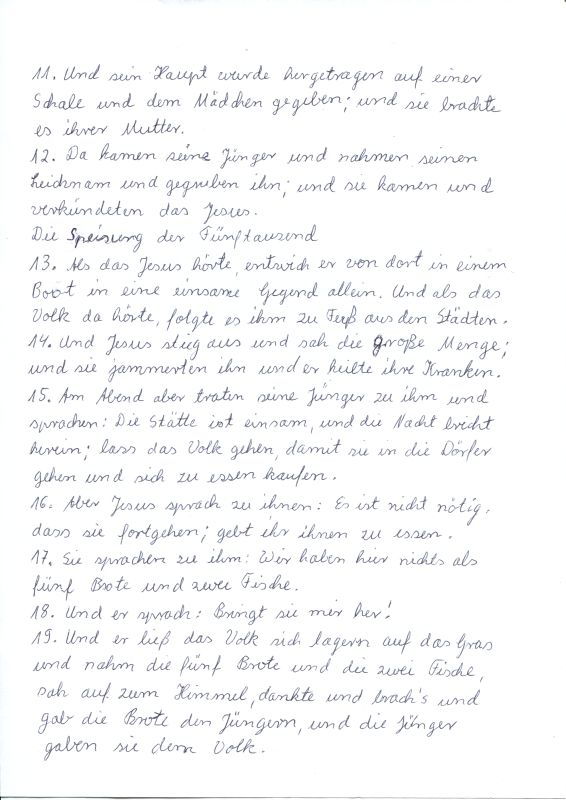 11. Und sein Haupt wurde hergetragen auf einer
Schale und dem Mädchen gegeben; und sie brachte
es ihrer Mutter.
12. Da kamen seine Jünger und nahmen seinen
Leichnam und begruben ihn; und sie kamen und
verkündeten das Jesus.
Die Speisung der Fünftausend
13. Als das Jesus hörte, entwich er von dort in einem
Boot in eine einsame Gegend allein. Und als das
Volk da hörte, folgte es ihm zu Fuß aus den Städten.
14. Und Jesus stieg aus und sah die große Menge;
und sie jammerten ihn und er heilte ihre Kranken.
15. Am Abend aber traten seine Jünger zu ihm und
sprachen: Die Stätte ist einsam, und die Nacht bricht
herein; lass das Volk gehen, damit sie in die Dörfer
gehen und sich zu essen kaufen.
16. Aber Jesus sprach zu ihnen: Es ist nicht nötig,
dass sie fortgehen; gebt ihr ihnen zu essen.
17. Sie sprachen zu ihm: Wir haben hier nichts als
fünf Brote und zwei Fische.
18. Und er sprach: Bringt sie mir her!
19. Und er ließ das Volk sich lagern auf das Gras
und nahm die fünf Brote und die zwei Fische,
sah auf zum Himmel, dankte und brach's und
gab die Brote den Jüngern, und die Jünger
gaben sie dem Volk.